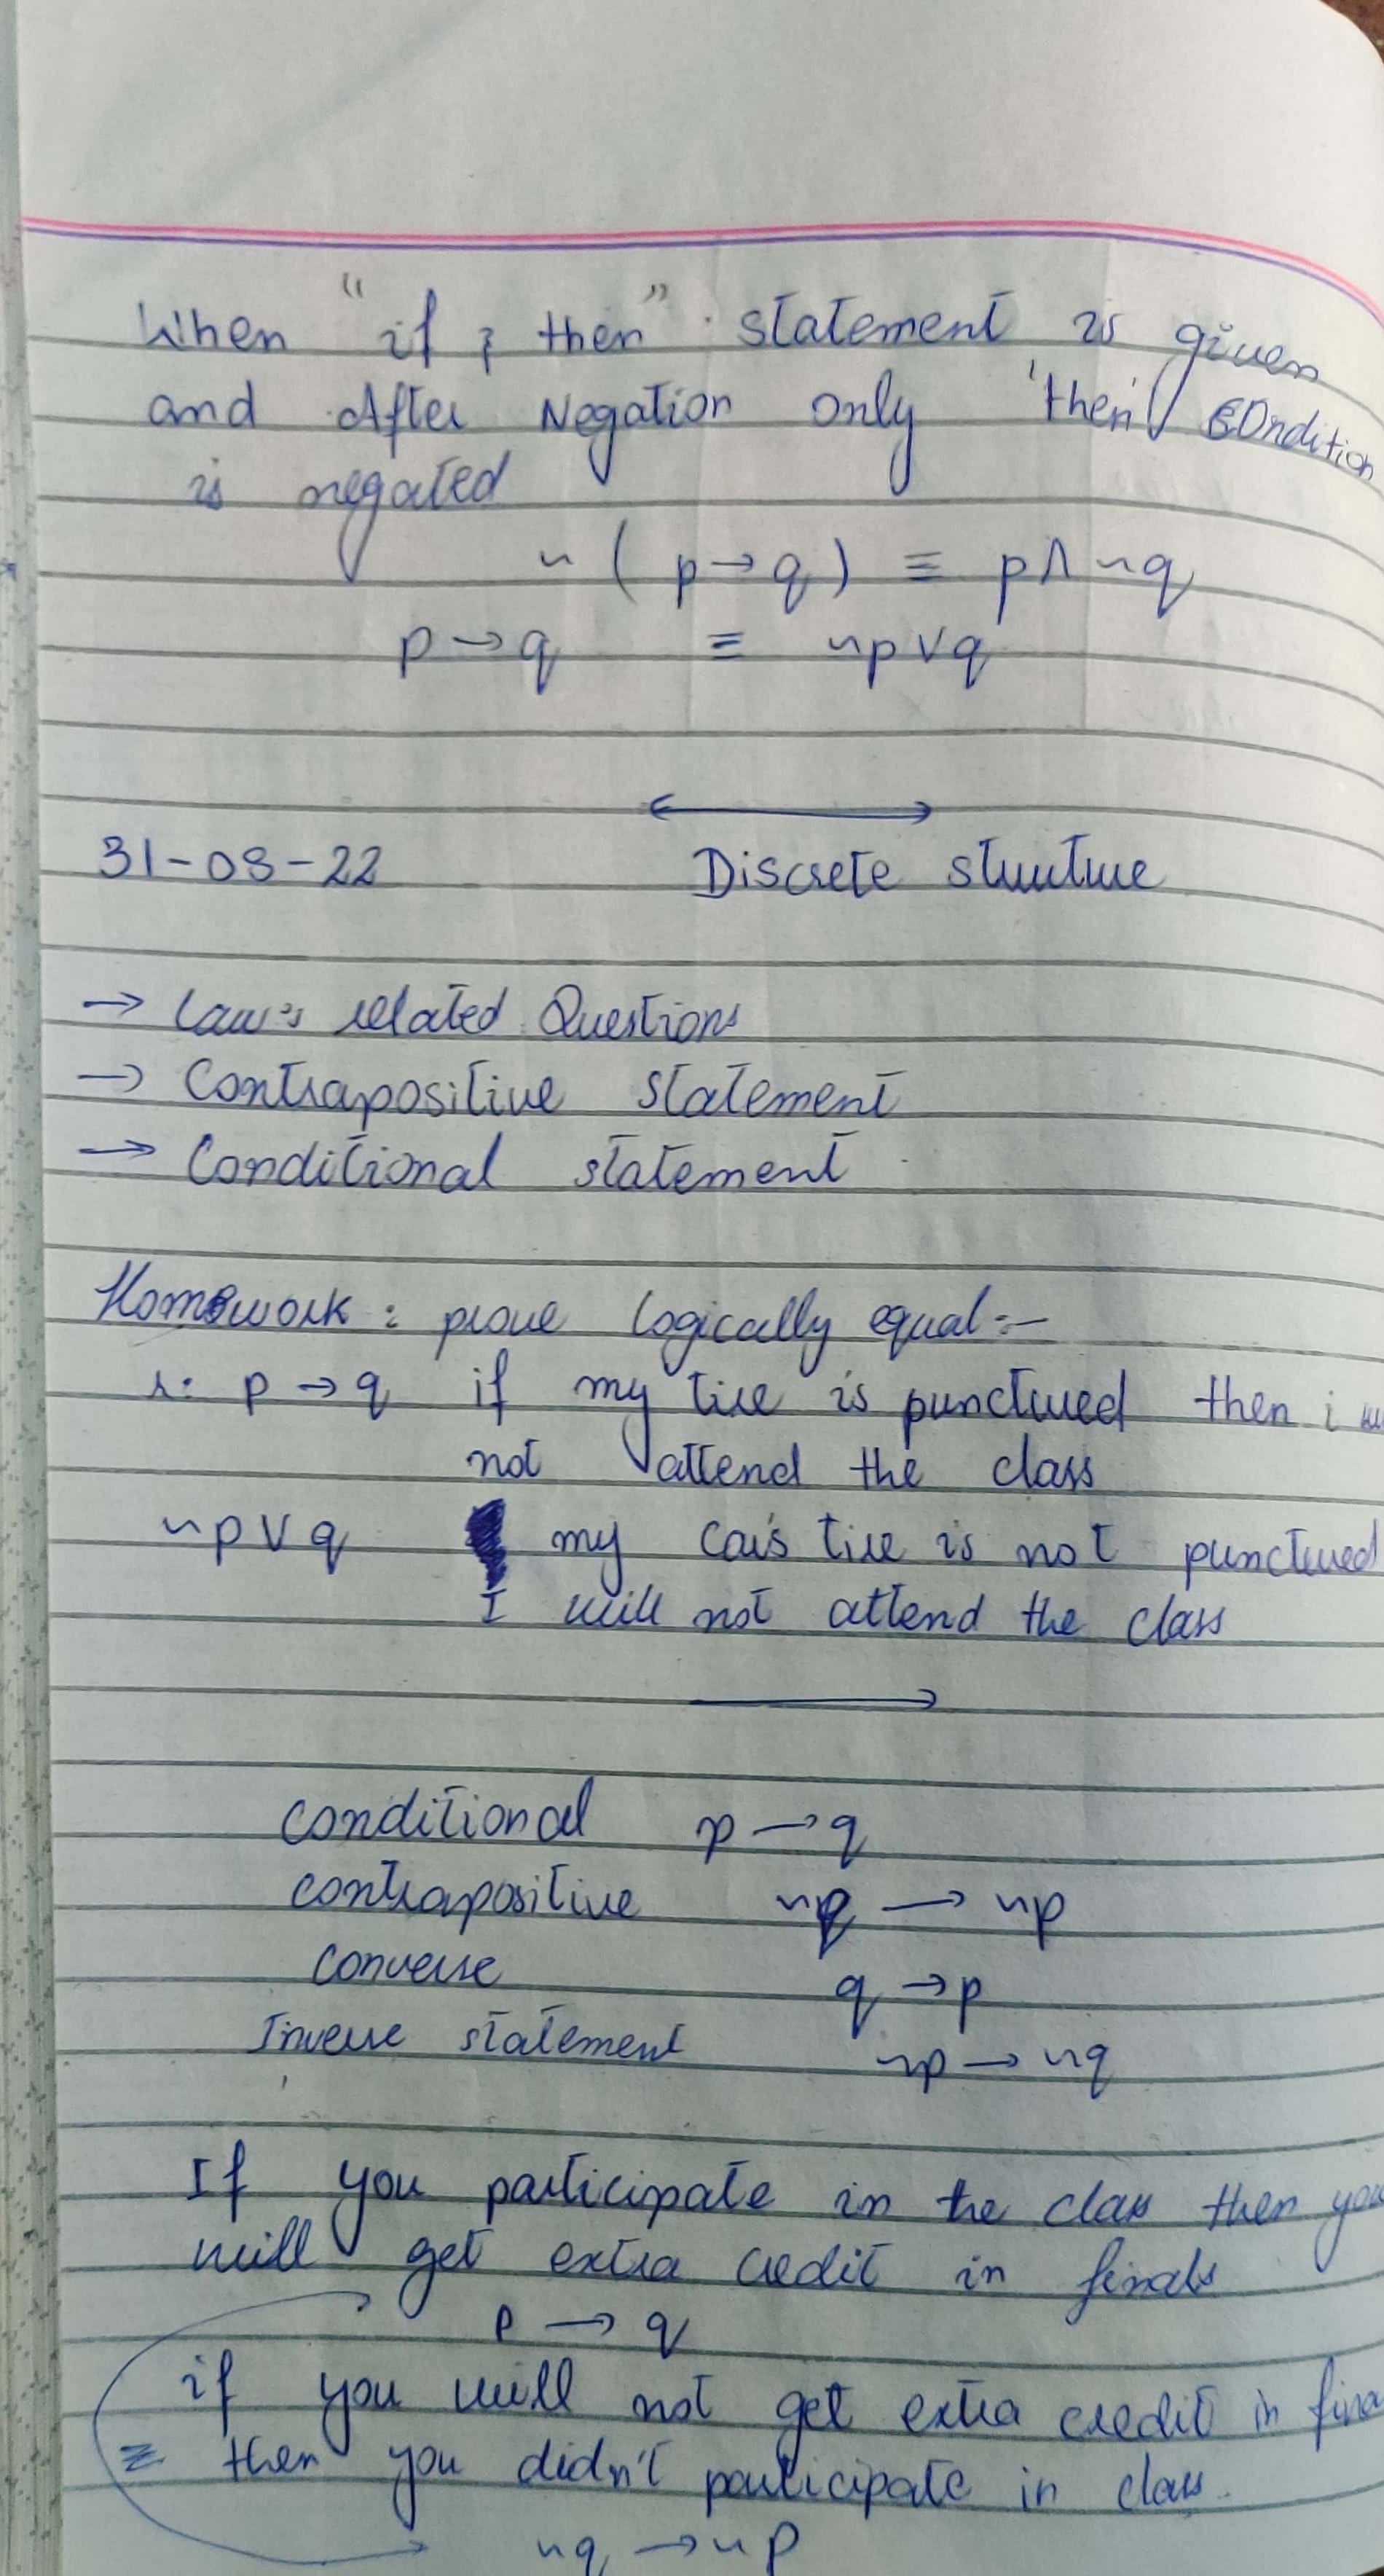 When "if ; then" statement is given
and After Negation only 'then' condition
is negated
~ ( p → q ) ≡ p ∧ ~q
p → q ≡ ~p ∨ q
31-08-22 Discrete structure
→ Law's related Questions
→ Contrapositive statement
→ Conditional statement
Homework : prove logically equal :-
p → q if my tire is punctured then i
not attend the class
~p ∨ q my car's tire is not punctured
I will not attend the class
conditional p → q
contrapositive ~q → ~p
converse q → p
Inverse statement ~p → ~q
If you participate in the class then you
will get extra credit in finals
p → q
if you will not get extra credit in
≡ then you didn't participate in class.
~q → ~p